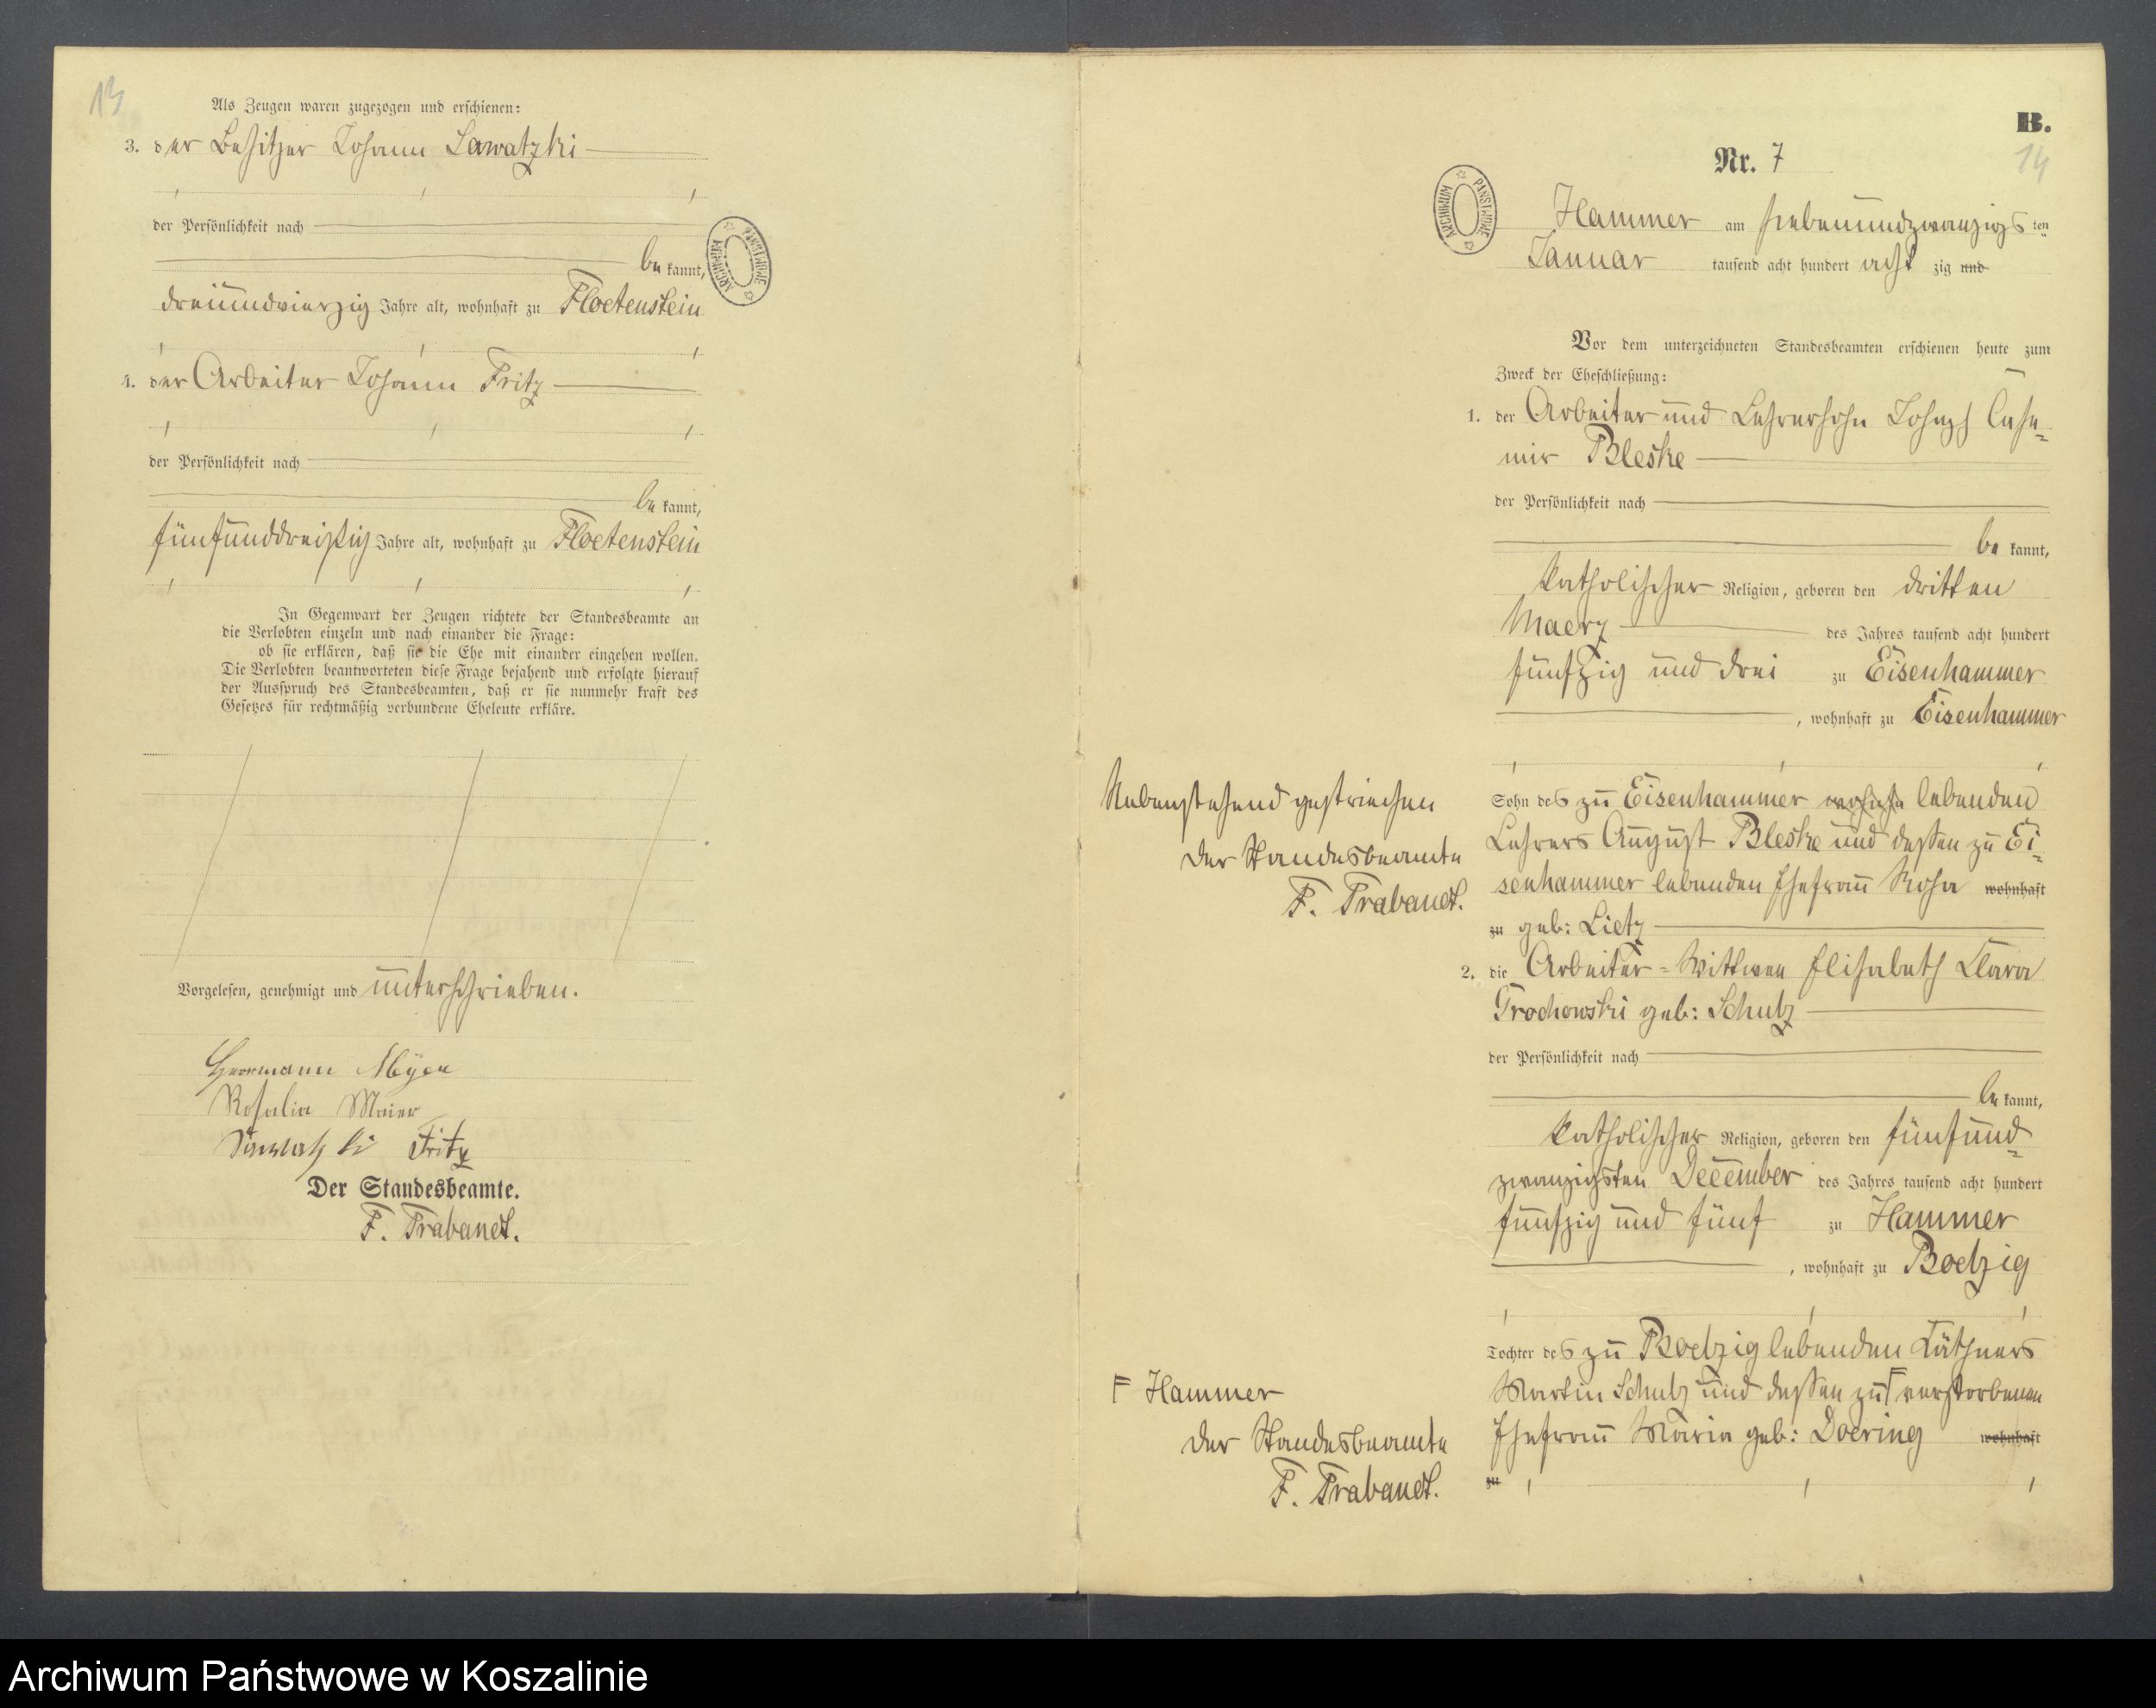 13
Als Zeugen waren zugezogen und erschienen:
3. der Besitzer Johann Sawatzki
der Persönlichkeit nach
be kannt,
dreiundvierzig Jahre alt, wohnhaft zu Floetenstein
4. der Arbeiter Johann Fritz
der Persönlichkeit nach
be kannt,
fünfunddreißig Jahre alt, wohnhaft zu Floetenstein
In Gegenwart der Zeugen richtete der Standesbeamte an
die Verlobten einzeln und nach einander die Frage:
ob sie erklären, daß sie die Ehe mit einander eingehen wollen.
Die Verlobten beantworteten diese Frage bejahend und erfolgte hierauf
der Ausspruch des Standesbeamten, daß er sie nunmehr kraft des
Gesetzes für rechtmäßig verbundene Eheleute erkläre.
Vorgelesen, genehmigt und unterschrieben.
Herrmann Myen
Rosalia Maier
Sawatzki Fritz
Der Standesbeamte.
F. Trabandt.
ARCHIWUM PAŃSTWOWE
B.
14
Nr. 7
ARCHIWUM PAŃSTWOWE
Hammer am siebenundzwanzigs ten
Januar tausend acht hundert acht zig und
Vor dem unterzeichneten Standesbeamten erschienen heute zum
Zweck der Eheschließung:
1. der Arbeiter und Lehrersohn Joseph Case-
mir Bleske
der Persönlichkeit nach
be kannt,
katholischer Religion, geboren den dritten
Maerz des Jahres tausend acht hundert
fünfzig und drei zu Eisenhammer
, wohnhaft zu Eisenhammer
Sohn des zu Eisenhammer lebenden
Lehrers August Bleske und dessen zu Ei-
senhammer lebenden Ehefrau Rosa wohnhaft
zu geb: Lietz
Nebenstehend gestrichen
Der Standesbeamte
F. Trabandt.
2. die Arbeiter-Wittwee Elisabeth Clara
Grochowski geb: Schulz
der Persönlichkeit nach
be kannt,
katholischer Religion, geboren den fünfund-
zwanzigsten December des Jahres tausend acht hundert
fünfzig und fünf zu Hammer
, wohnhaft zu Boelzig
Tochter des zu Boelzig lebenden Käthners
Martin Schulz und dessen zu F verstorbenen
Ehefrau Maria geb: Doering wohnhaft
zu
F Hammer
Der Standesbeamte
F. Trabandt.
Archiwum Państwowe w Koszalinie